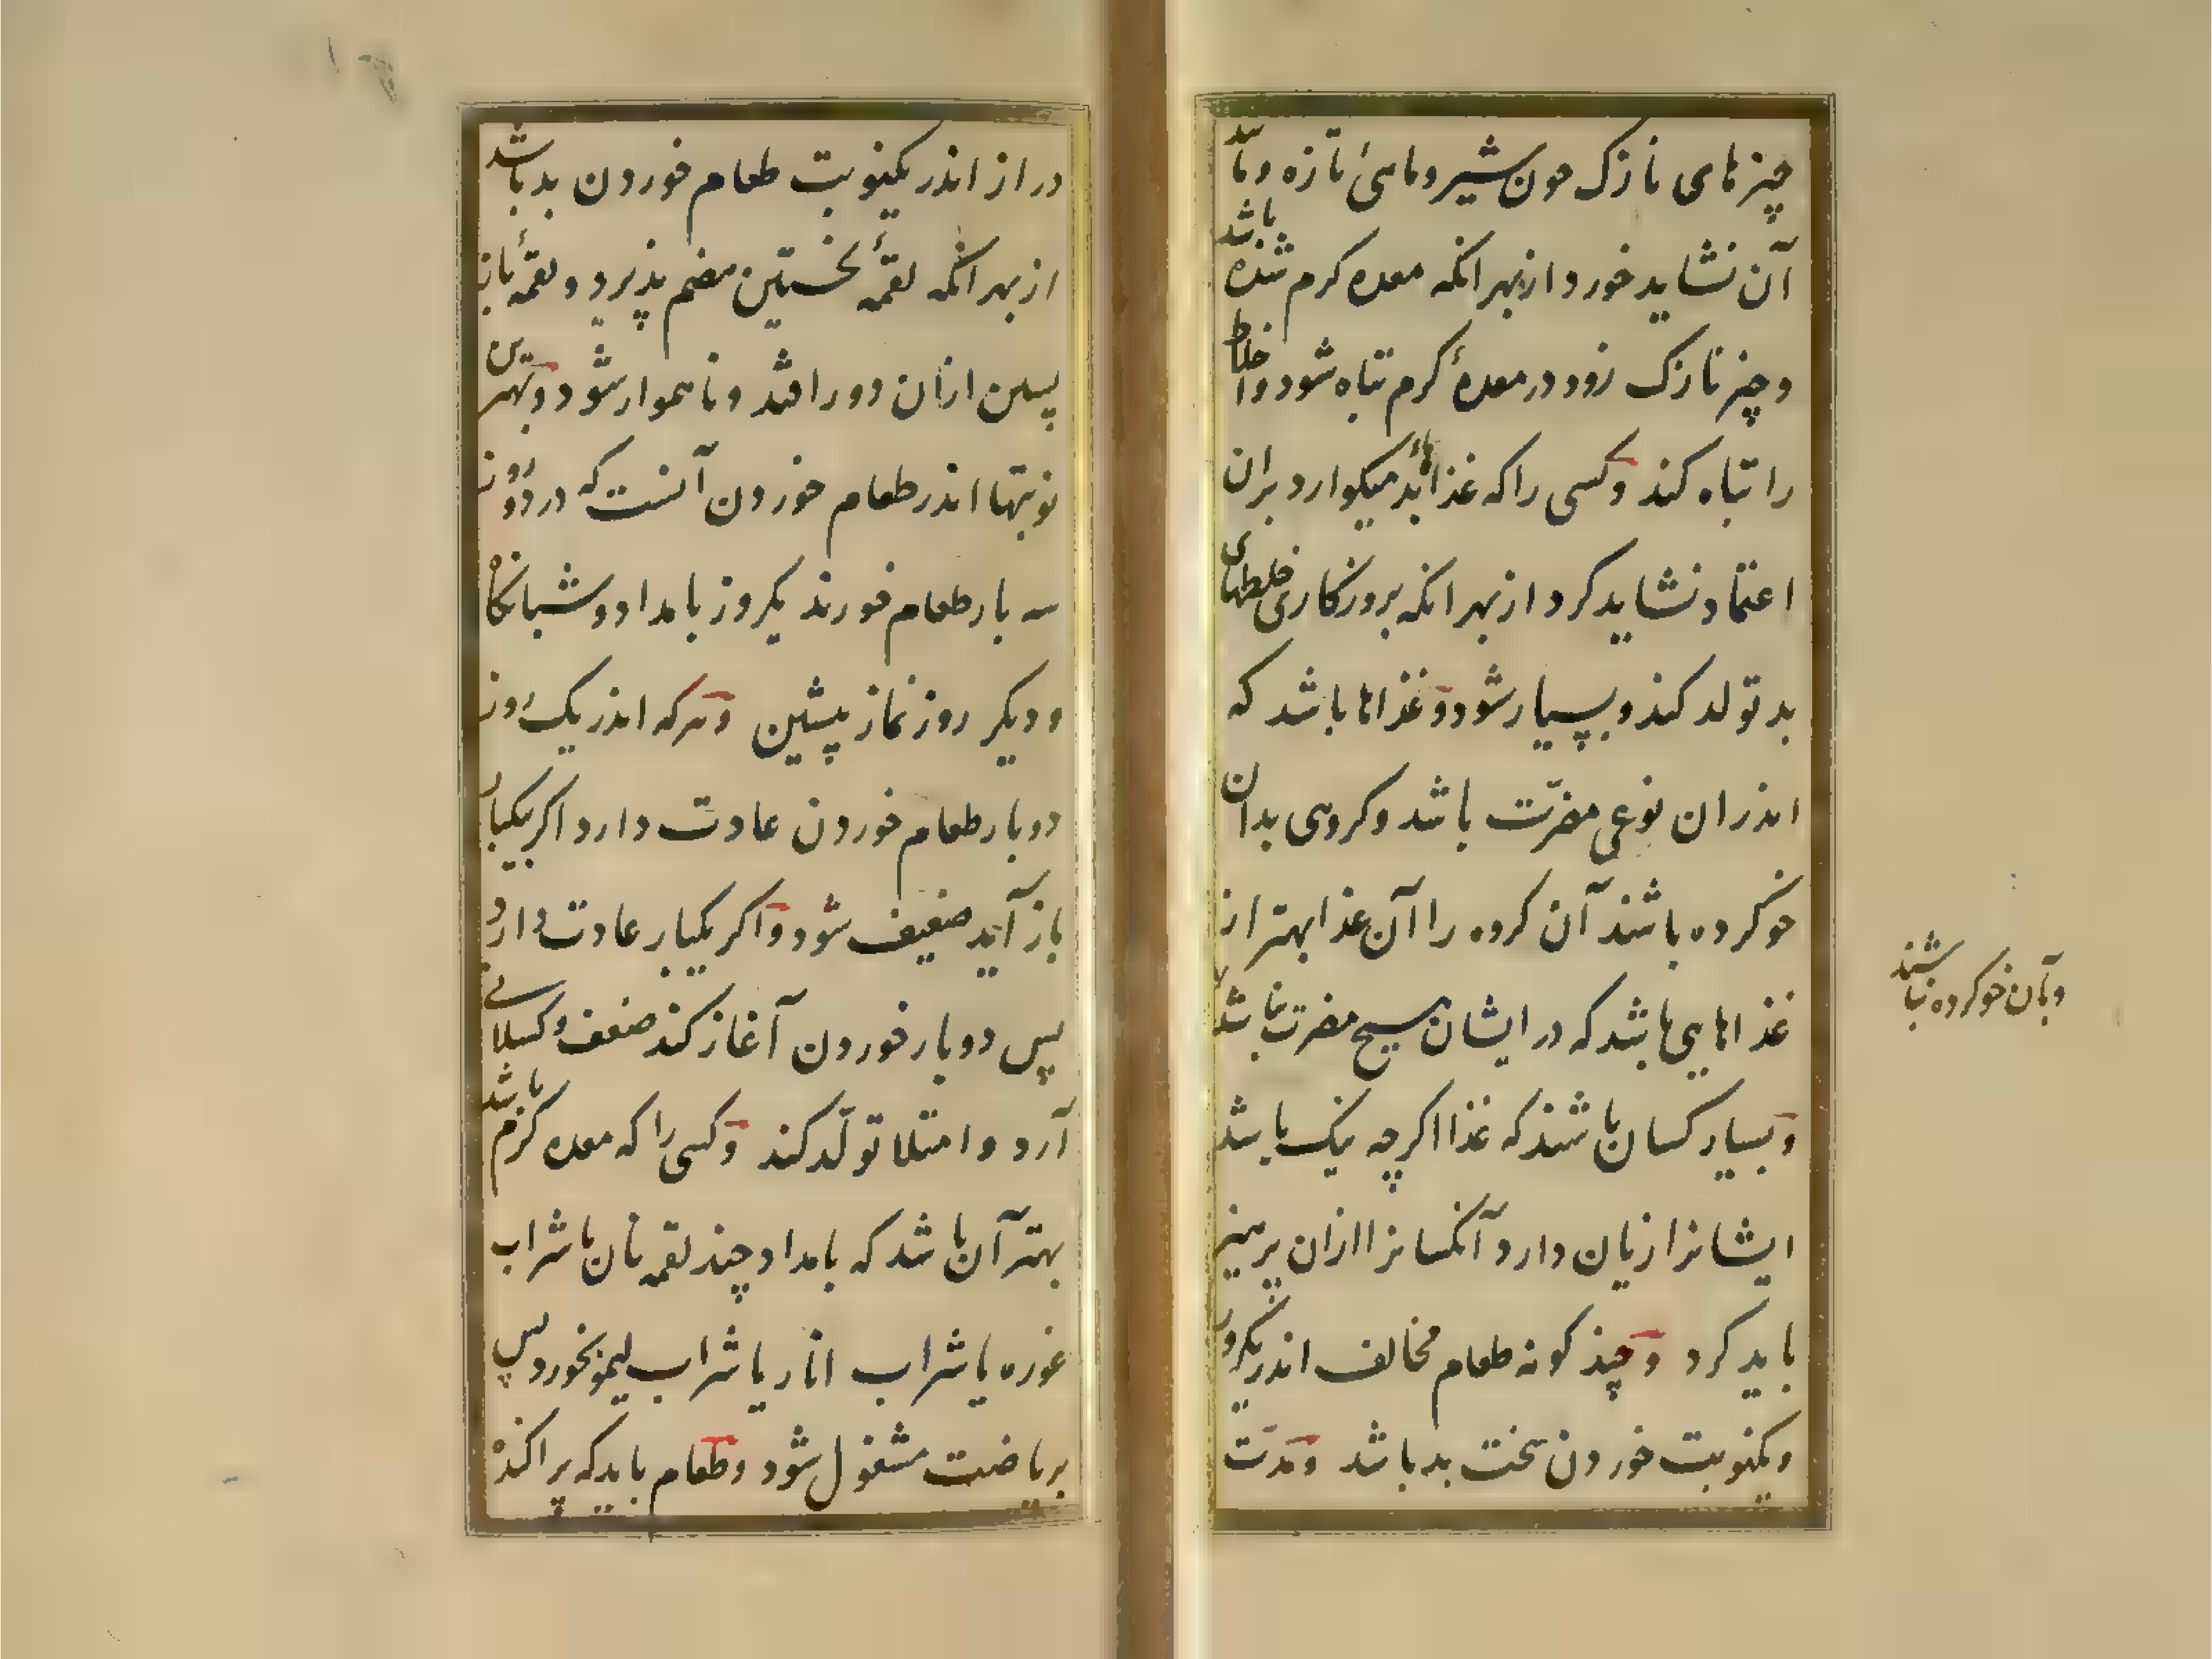 چیزهای نازک چون شیر و ماهیٔ تازه و مانند
آن نشاید خورد از بهر انکه معده کرم شده باشد
و چیز نازک زود در معدهٔ کرم تباه شود و اخلاط
را تباه کند و کسی را که غذاهاء بد میکوارد بران
اعتماد نشاید کرد از بهر انکه بروزکاری خلطهای
بد تولد کند و بسیار شود و غذاها باشد که
اندران نوعی مضرّت باشد و کروهی بدان
خو کرده باشند آن کروه را آن غذا بهتر از
غذاهایی باشد که در ایشان هیچ مضرت نباشد
و بآن خو کرده نباشند
و بسیار کسان باشند که غذا اکرچه نیک باشد
ایشانرا زیان دارد آنکسانرا ازان پرهیز
باید کرد و چند کونه طعام مخالف اندر یکروز
و یکنوبت خوردن سخت بد باشد و مدّت
دراز اندر یکنوبت طعام خوردن بد باشد
از بهر انکه لقمهٔ نخستین هضم پذیرد و لقمهٔ باز
پسین ازان دور افتد و ناهموار شود و بهترین
نوبتها اندر طعام خوردن آنست که در دو روز
سه بار طعام خورند یکروز بامداد و شبانکاه
و دیکر روز نماز پیشین و هرکه اندر یک روز
دو بار طعام خوردن عادت دارد اکر بیکبار
باز آید ضعیف شود و اکر یکبار عادت دارد
پس دو بار خوردن آغاز کند ضعف و کسلانی
آرد و امتلا تولّد کند و کسی را که معده کرم باشد
بهتر آن باشد که بامداد چند لقمه نان با شراب
غوره یا شراب انار یا شراب لیمو بخورد پس
بریاضت مشغول شود و طعام باید که پراکنده